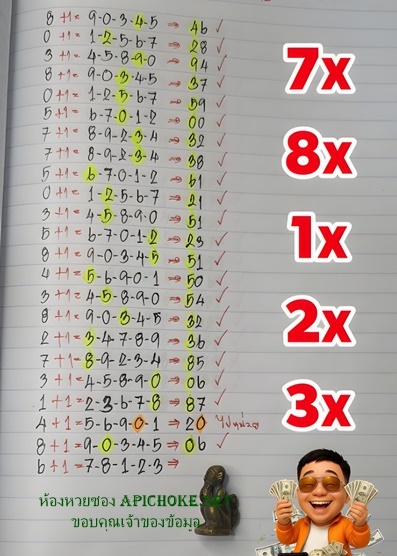 8 +1= 9-0-3-4-5 ⇒ 46 ✓
0 +1= 1-2-5-6-7 ⇒ 28 ✓
3 +1= 4-5-8-9-0 ⇒ 94 ✓
8 +1= 9-0-3-4-5 ⇒ 37 ✓
0 +1= 1-2-5-6-7 ⇒ 59 ✓
5 +1= 6-7-0-1-2 ⇒ 00 ✓
7 +1= 8-9-2-3-4 ⇒ 32 ✓
7 +1= 8-9-2-3-4 ⇒ 38 ✓
5 +1= 6-7-0-1-2 ⇒ 61 ✓
0 +1= 1-2-5-6-7 ⇒ 21 ✓
3 +1= 4-5-8-9-0 ⇒ 51 ✓
5 +1= 6-7-0-1-2 ⇒ 23 ✓
8 +1= 9-0-3-4-5 ⇒ 51 ✓
4 +1= 5-6-9-0-1 ⇒ 50 ✓
3 +1= 4-5-8-9-0 ⇒ 54 ✓
8 +1= 9-0-3-4-5 ⇒ 32 ✓
2 +1= 3-4-7-8-9 ⇒ 36 ✓
7 +1= 8-9-2-3-4 ⇒ 85 ✓
3 +1= 4-5-8-9-0 ⇒ 06 ✓
1 +1= 2-3-6-7-8 ⇒ 87 ✓
4 +1= 5-6-9-0-1 ⇒ 20
8 +1= 9-0-3-4-5 ⇒ 06 ✓
6 +1= 7-8-1-2-3 ⇒
7x
8x
1x
2x
3x
ห้องหวยซอง APICHOKE.NET
ขอบคุณเจ้าของข้อมูล